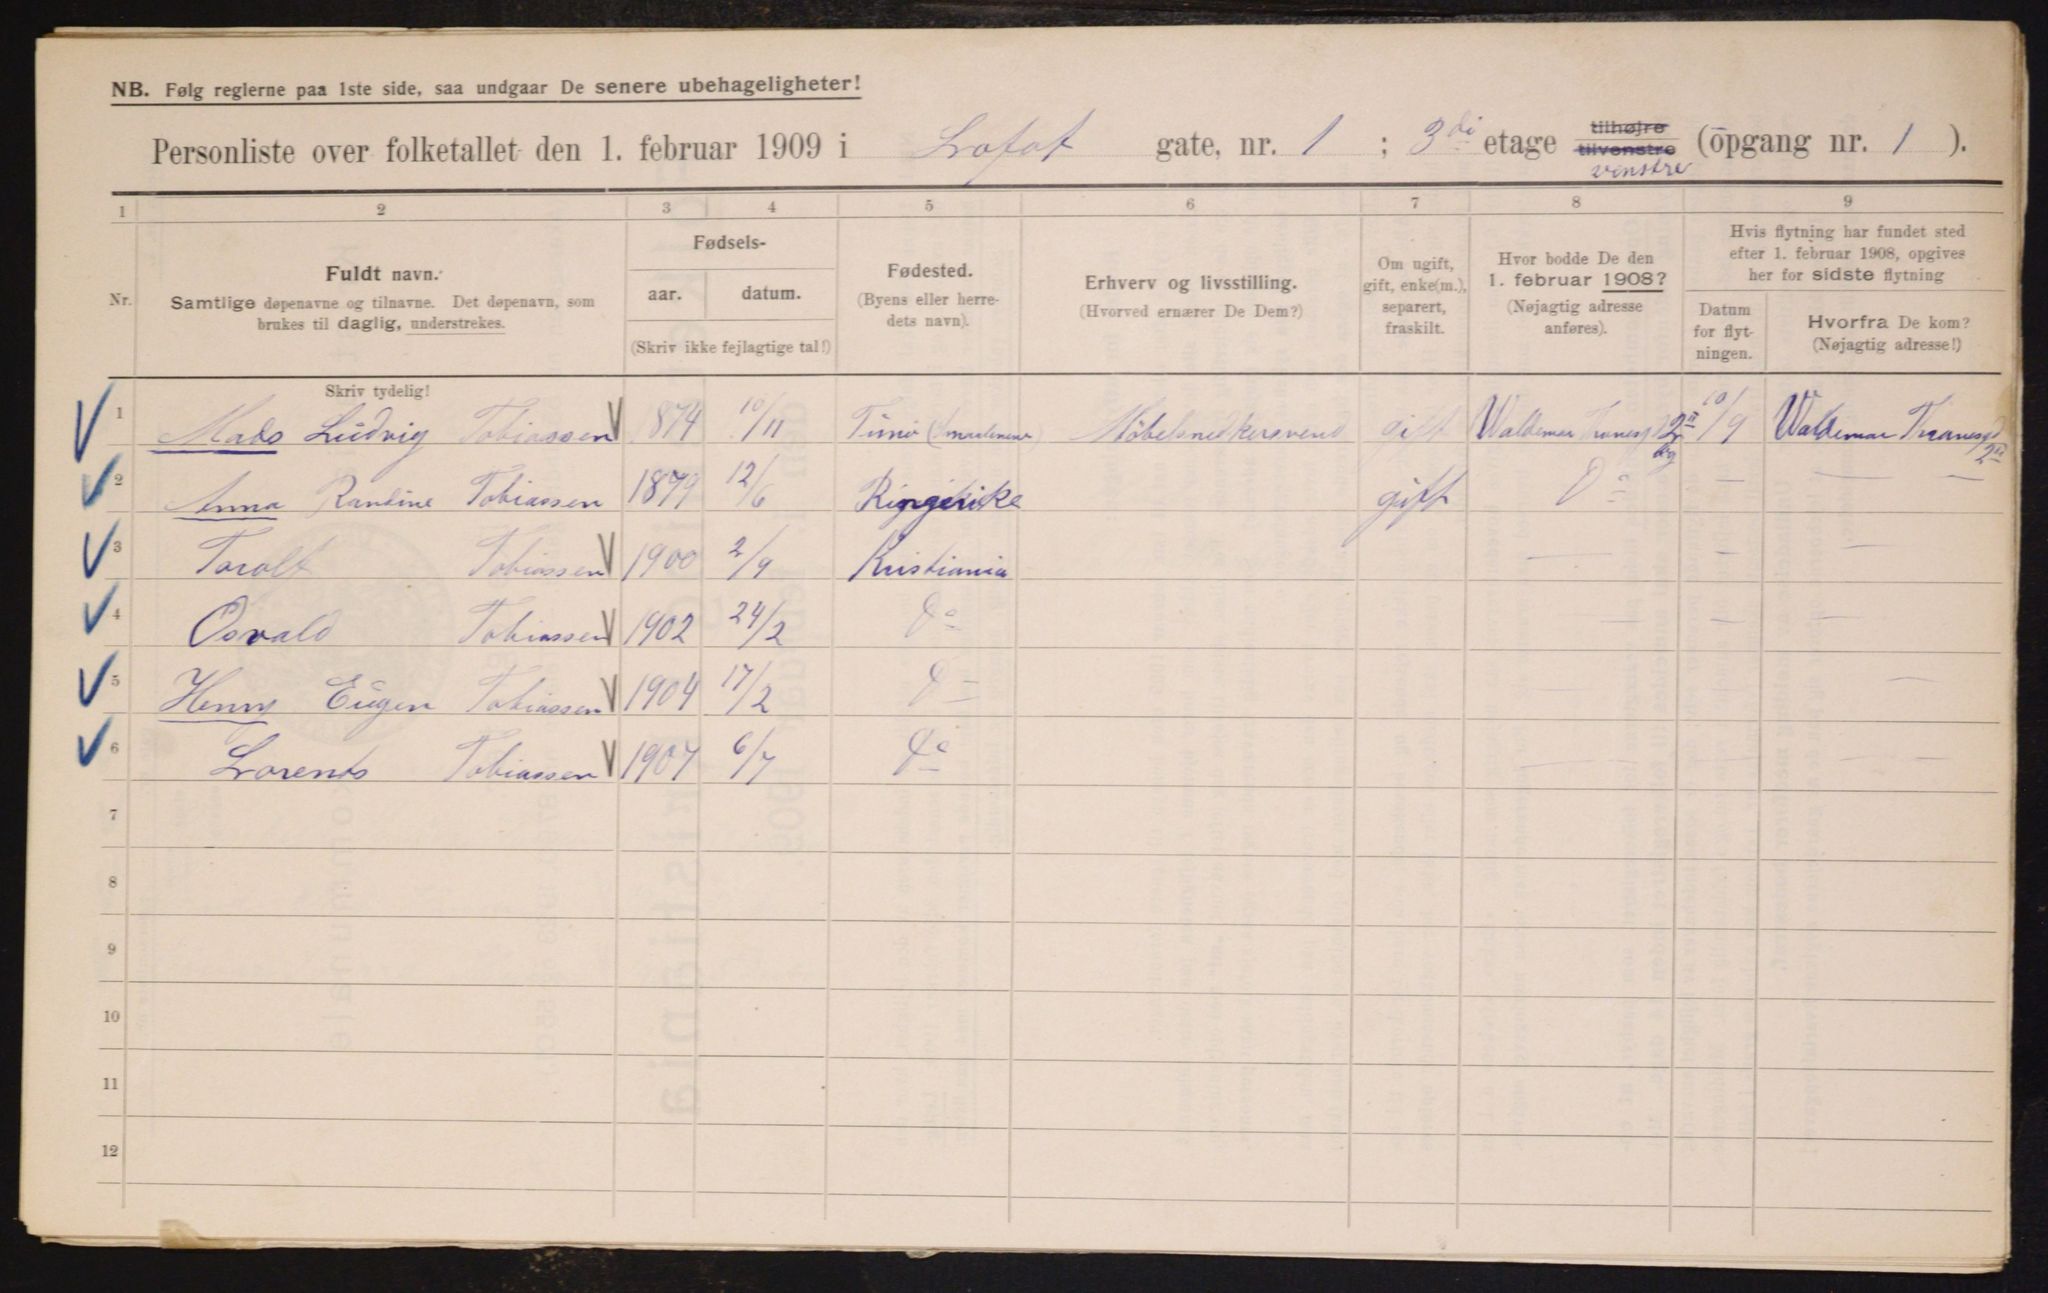 NB. Følg reglerne paa 1ste side, saa undgaar De senere ubehageligheter!
Personliste over folketallet den 1. februar 1909 i Lofot gate, nr. 1 ; 3di etage tilhøjre tilvenstre venstre (opgang nr. 1 ).
1 2 3 4 5 6 7 8 9
Nr.
Fuldt navn.
Samtlige døpenavne og tilnavne. Det døpenavn, som
brukes til daglig, understrekes.
Fødsels-
aar. datum.
(Skriv ikke fejlagtige tal!)
Fødested.
(Byens eller herre-
dets navn).
Erhverv og livsstilling.
(Hvorved ernærer De Dem?)
Om ugift,
gift, enke(m.),
separert,
fraskilt.
Hvor bodde De den
1. februar 1908?
(Nøjagtig adresse
anføres).
Hvis flytning har fundet sted
efter 1. februar 1908, opgives
her for sidste flytning
Datum
for flyt-
ningen.
Hvorfra De kom?
(Nøjagtig adresse!)
Skriv tydelig!
1 Mads Ludvig Tobiassen 1874 10/11 Møbelsnedkersvend gift Waldemar Tranesg 10/9 Waldemar Thranesgd
2 Anna Randine Tobiassen 1879 12/6 Ringerike gift Do — — —
3 Toralf Tobiassen 1900 2/9 Kristiania — — —
4 Osvald Tobiassen 1902 24/2 Do — — —
5 Henry Eugen Tobiassen 1904 17/2 Do — — —
6 Lorents Tobiassen 1907 6/7 Do — — — —
7
8
9
10
11
12